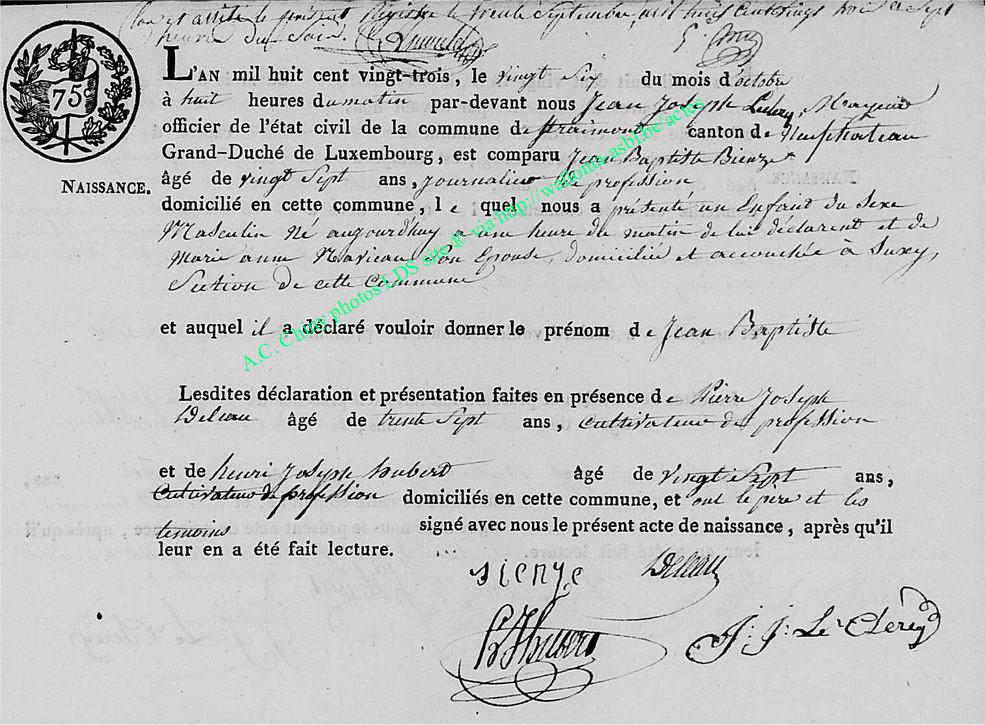 est arrêté le présent Registre le trente Septembre mil huit cent vingt trois a Sept
heures du Soir.
75
L'AN mil huit cent vingt-trois, le vingt Six du mois d'octobre
à huit heures du matin par-devant nous Jean Joseph Mayeur
officier de l'état civil de la commune de Straimont canton de Neufchateau
Grand-Duché de Luxembourg, est comparu Jean Baptiste Bienze
NAISSANCE.
âgé de vingt Sept ans, journalier de profession
domicilié en cette commune, le quel nous a présenté un Enfant du Sexe
Masculin Né aujourd'huy a une heure du matin de lui déclarent et de
Marie anne Son Epouse, domiciliée et accouchée à Suxy,
Section de cette Commune
et auquel il a déclaré vouloir donner le prénom de Jean Baptiste
Lesdites déclaration et présentation faites en présence de Pierre Joseph
Deleau âgé de trente Sept ans, Cultivateur de profession
et de henri Joseph hubert âgé de vingt Sept ans,
Cultivateur de profession domiciliés en cette commune, et ont le pere et les
temoins signé avec nous le présent acte de naissance, après qu'il
leur en a été fait lecture.
sienze Deleau
hubert J: J: Le Clérey
A.C. Chiny photos LDS site ® via http://wallonia.asbl.be/actes